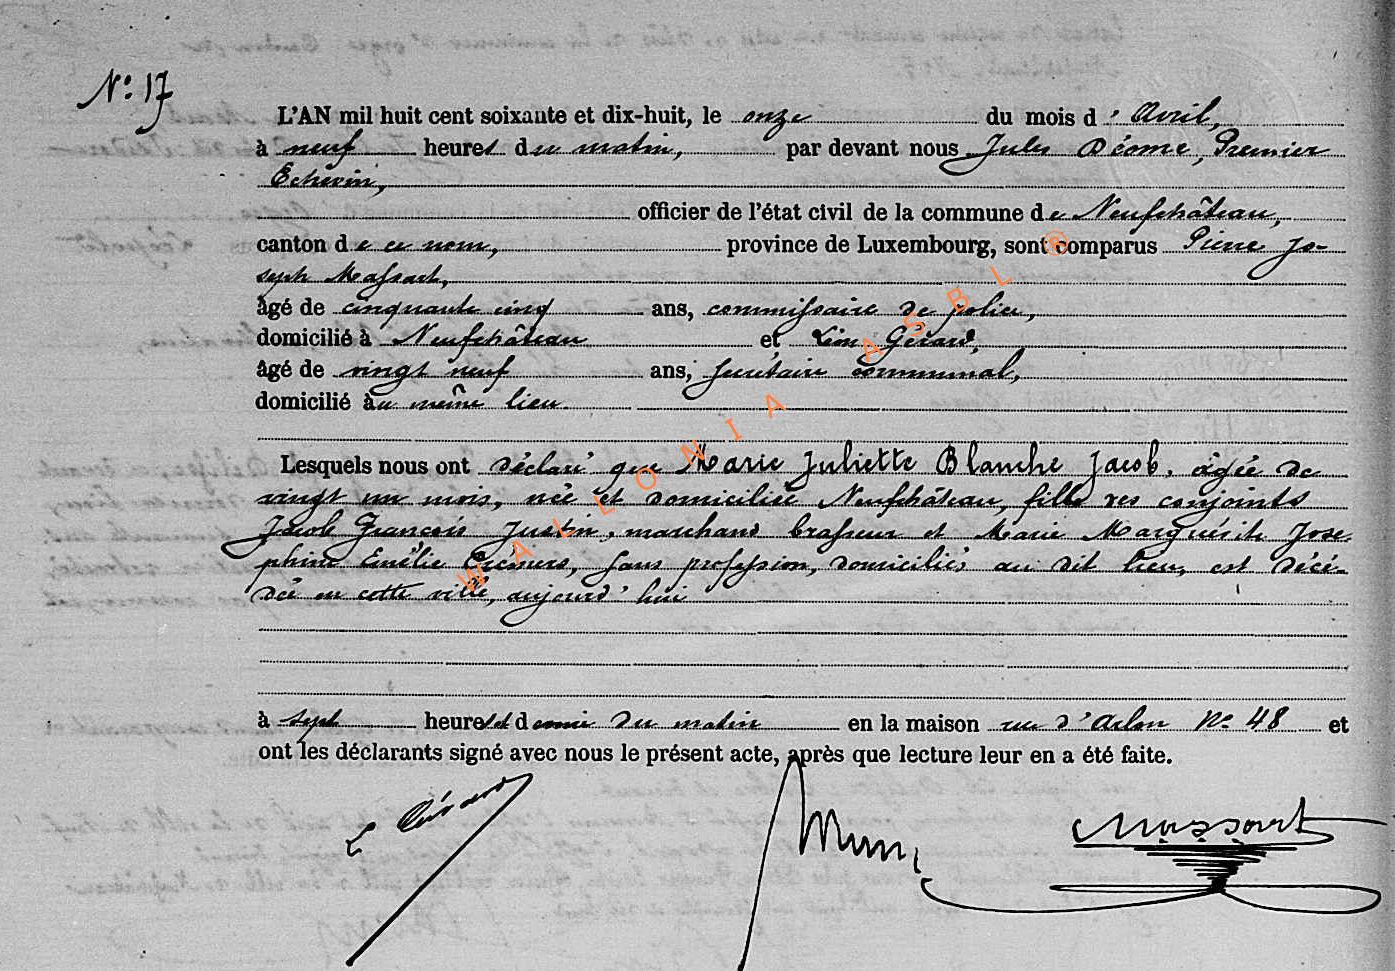 N° 17
L'AN mil huit cent soixante et dix-huit, le onze du mois d'Avril,
à neuf heures du matin, par devant nous Jules Déome, Premier
Echevin,
officier de l'état civil de la commune de Neufchâteau,
canton de ce nom, province de Luxembourg, sont comparus Pierre Jo-
seph Massart,
âgé de cinquante cinq ans, commissaire de police,
domicilié à Neufchâteau et Léon Gérard,
âgé de vingt neuf ans, secrétaire communal,
domicilié au même lieu.
Lesquels nous ont déclaré que Marie Juliette Blanche Jacob, âgée de
vingt un mois, née et domiciliée Neufchâteau, fille des conjoints
Jacob François Justin, marchand brasseur et Marie Marguérite José-
phine Emélie, sans profession, domiciliés au dit lieu, est décé-
dée en cette ville, aujourd'hui
à sept heures et demie du matin en la maison rue d'Arlon N° 48 et
ont les déclarants signé avec nous le présent acte, après que lecture leur en a été faite.
L Gérard
Massart
WALLONIA ASBL ®